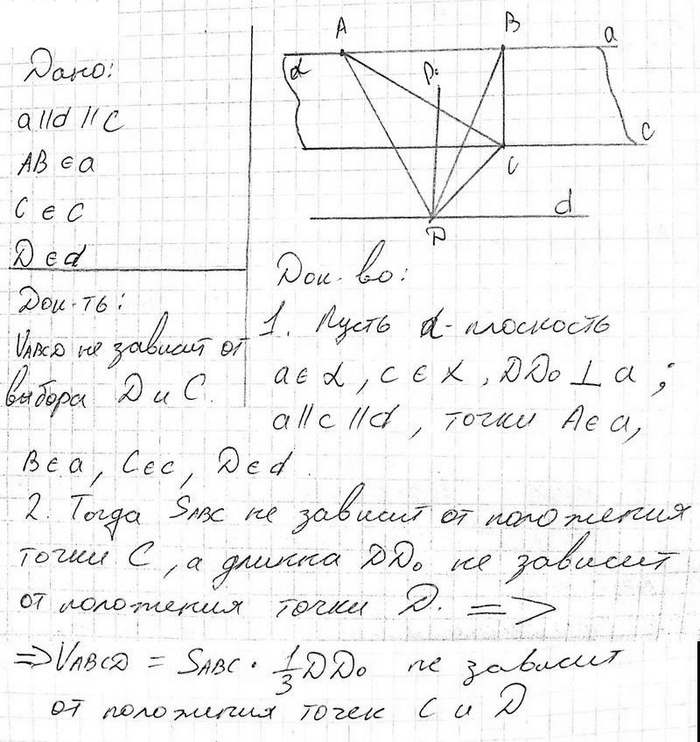 Дано:
a || d || c
AB ∈ a
C ∈ c
D ∈ d
Док-ть:
V_ABCD не зависит от
выбора D и C.
A
B
a
α
D₀
C
c
D
d
Док-во:
1. Пусть α - плоскость
a ∈ α, c ∈ α, DD₀ ⊥ α;
a || c || d, точки A ∈ a,
B ∈ a, C ∈ c, D ∈ d.
2. Тогда S_ABC не зависит от положения
точки C, а длинна DD₀ не зависит
от положения точки D. =>
=> V_ABCD = S_ABC · 1/3 DD₀ не зависит
от положения точек C и D